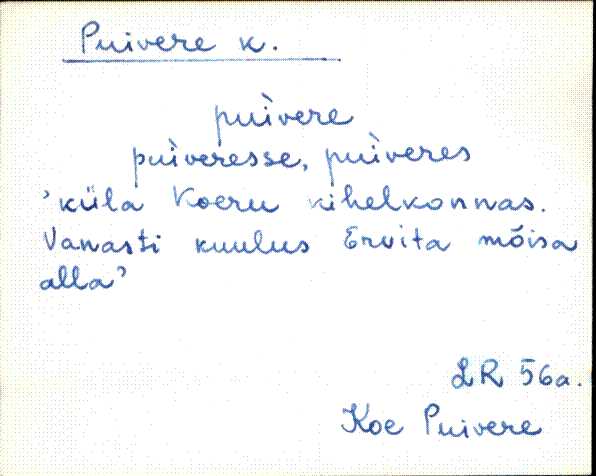 Puivere k.
puìvere
puìveresse, puìveres
'küla Koeru kihelkonnas.
Vanasti kuulus Ervita mõisa
alla'
LR 56a.
Koe Puivere